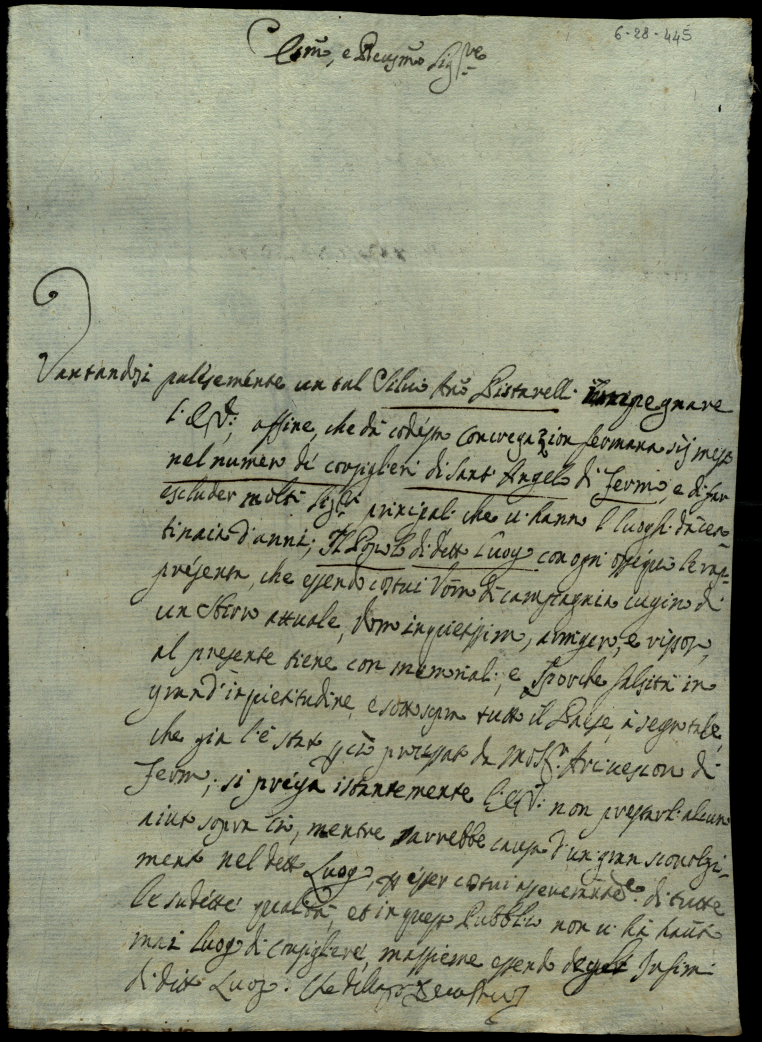 6-28-445
Em̃o, e Reuẽmo Sig.re
Vantandosi palesemente un tal Siluio Ant.o Pistarelli impegnare
l'E.V.; affine, che da codesta Congregazion fermana sij messo
nel numero de consiglieri di Sant'Angelo di Fermo, e di far
escluder molti Sig.ri principali che ui hanno il luogo di cen-
tinaia d'anni; Il Popolo di detto Luogo con ogni ossequio le rap-
presenta, che essendo costui Vomo di campagnia cugino di
un Sbirro attuale, Vomo inquietissimo, armigero, e rissoso,
al presente tiene con memoriali, e sporche falsità in
grand'inquietitudine, e sottosopra tutto il Paese, a segno tale,
che gia l'è stato p ciò processato da Mons.r Arciuescouo di
Fermo; si prega istantemente l'E.V. non prestarli alcun
aiuto sopra ciò, mentre sarrebbe causa d'un gran sconvolgi-
mento nel detto Luogo, p esser costui di tutte
le sudette qualità, et in questo Pubblico non ui hà hauto
mai luogo di consigliere, massime essendo degli Infimi
di detto Luogo. Che della